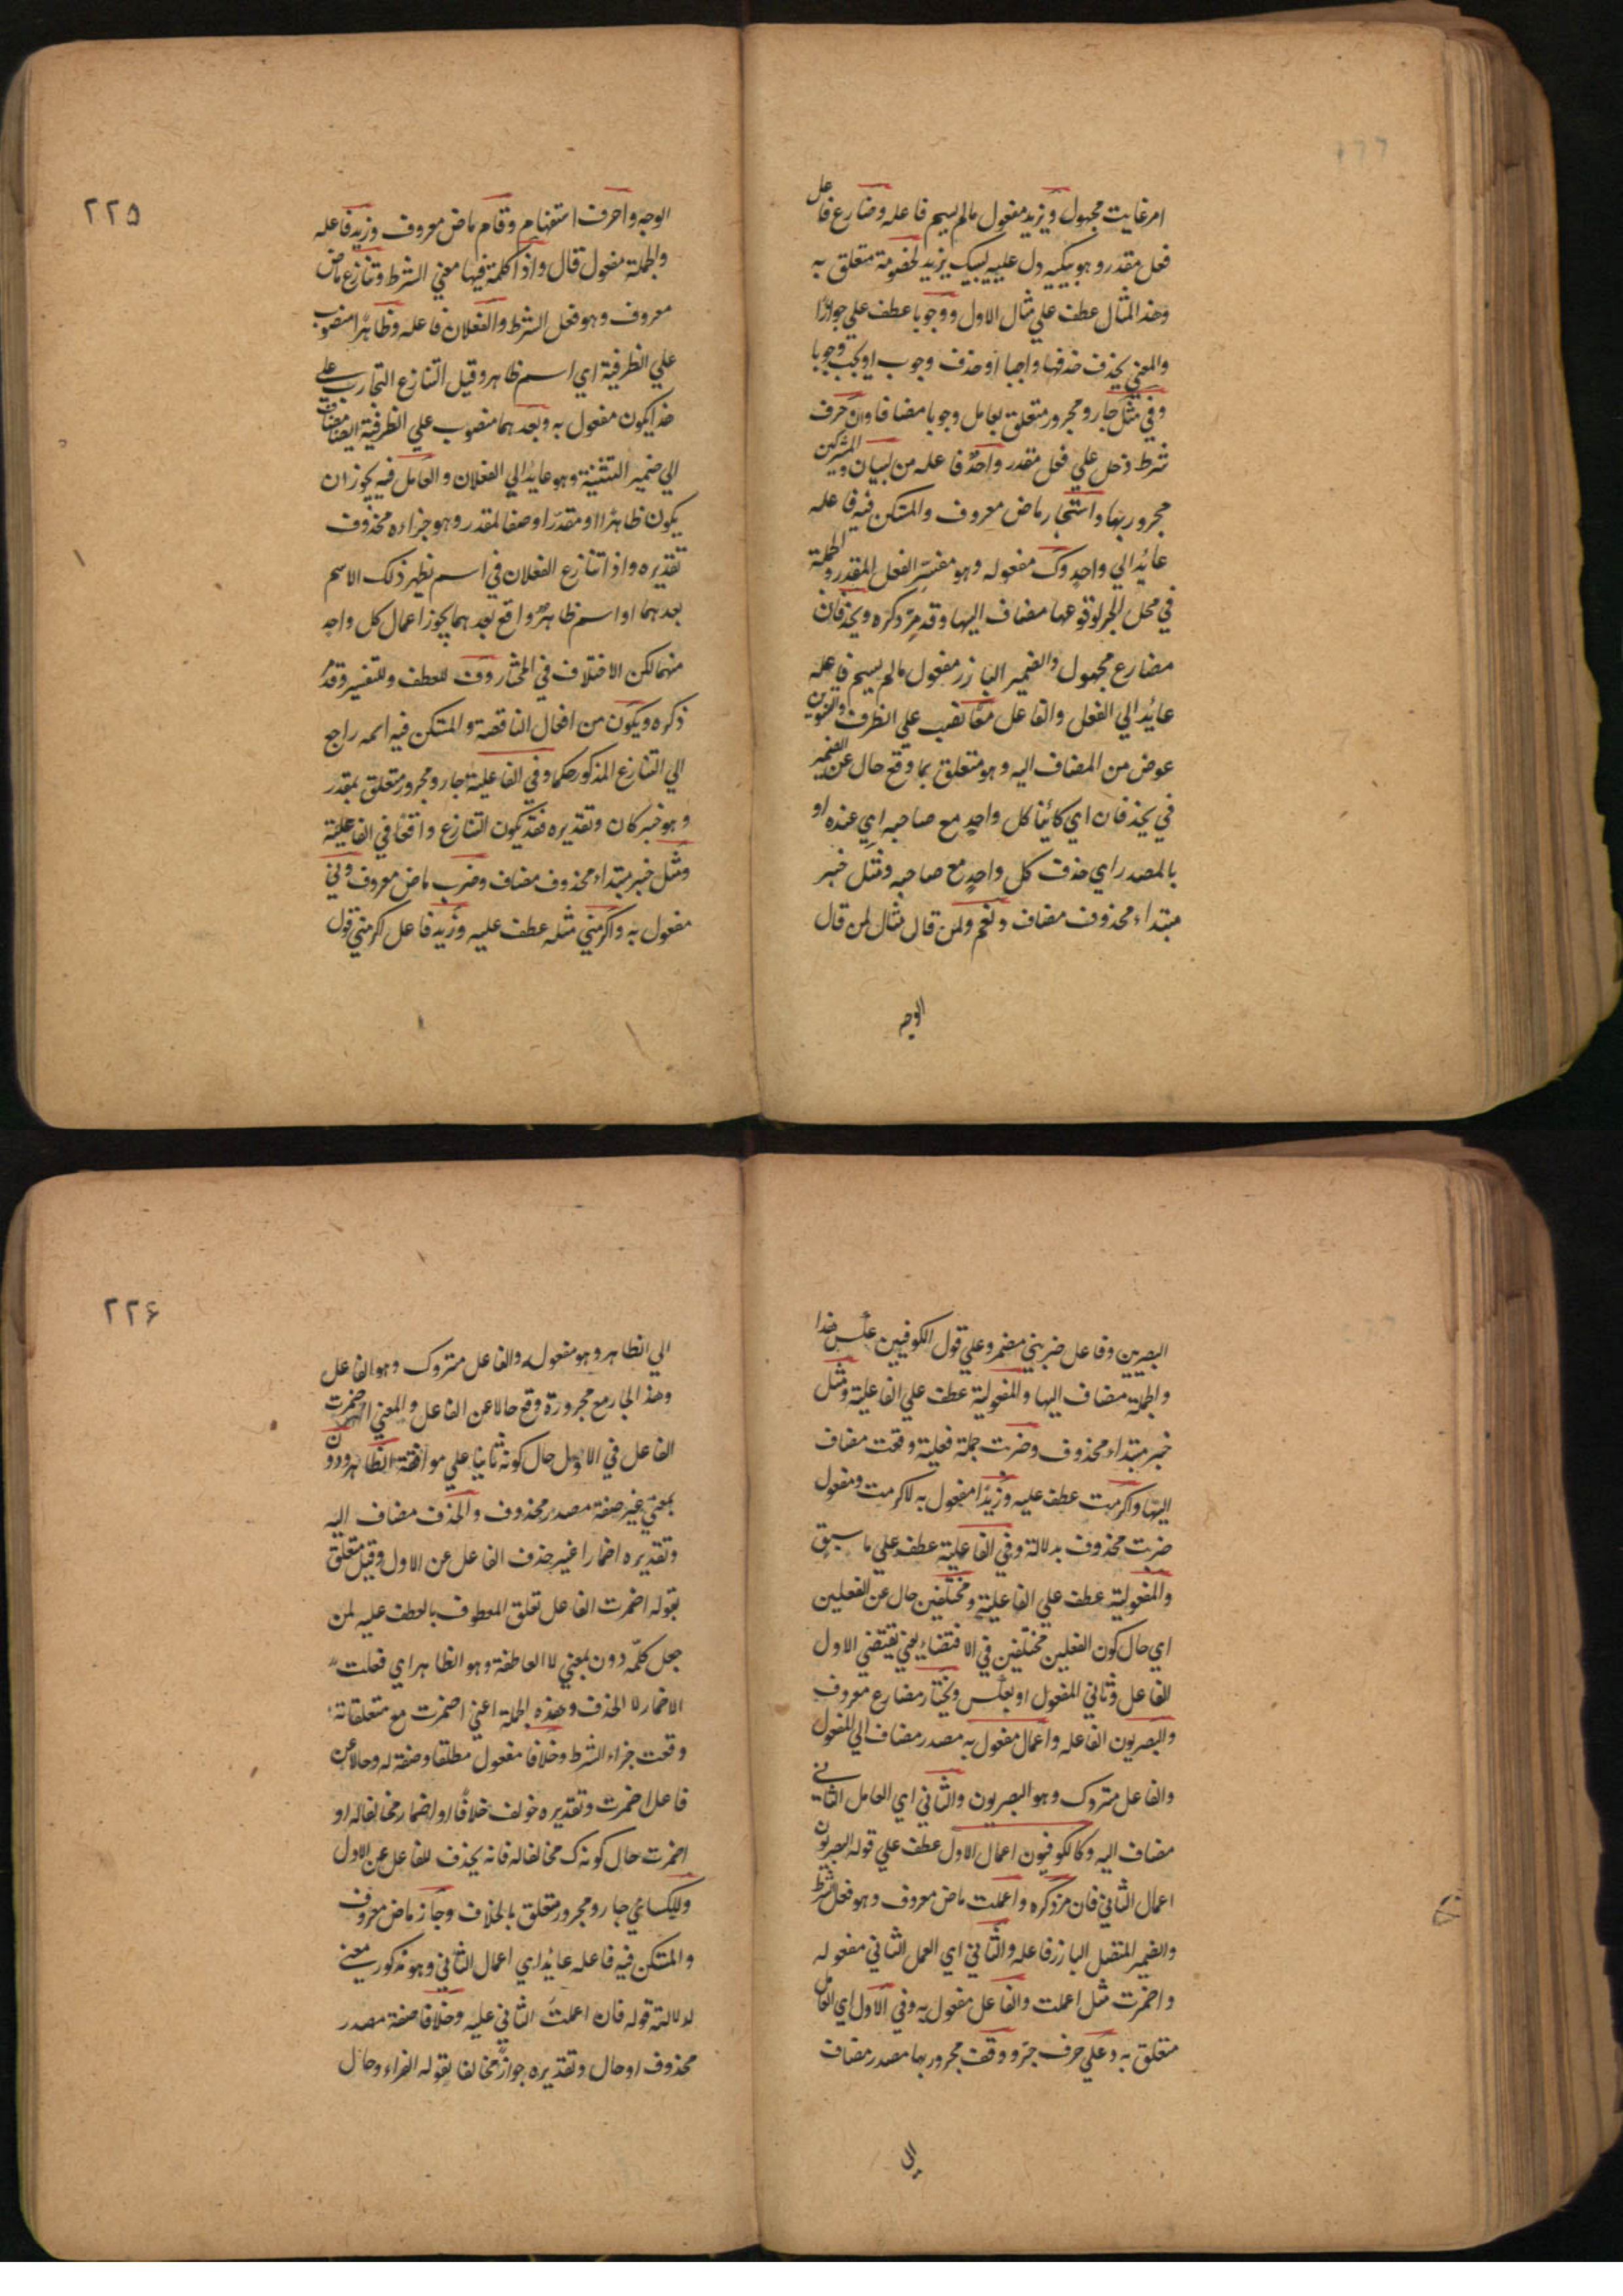 امر غايت مجهول ويزيد مفعول مالم يسم فاعله وضارع فاعل
فعل مقدر وهو يبكيه دل عليه ليبك يزيد لخصومة متعلق به
وهذ المثال عطف علي مثال الاول ووجوبا عطف علي جوازا
والمعني يحذف حذفها واجبا او حذف وجوب او يجب وجوبا
وفي مثل جار ومجرور متعلق بعامل وجوبا مضافا وان حرف
شرط دخل علي فعل مقدر واحد فاعله من لبيان والمشركين
مجرور بها واستجار ماض معروف والمتكن فيه فاعله
عايد الي واحد وك مفعوله وهو مفسر الفعل المقدر والجملة
في محل الجر لوقوعها مضاف اليها وقد مر ذكره ويحذفان
مضارع مجهول والضمير البارز مفعول مالم يسم فاعله
عايد الي الفعل والفاعل معا نصب علي الظرف والتنوين
عوض من المضاف اليه وهو متعلق بما وقع حال عن الضمير
في يحذفان اي كائنا كل واحد مع صاحبه اي عنده او
بالمصدر اي حذف كل واحد مع صاحبه ومثل خبر
مبتداء محذوف مضاف ونعم ولمن قال مثال لمن قال
الوجه
٢٢٥
الوجه واحرف استفهام وقام ماض معروف وزيد فاعله
والجملة مفعول قال واذا كلمة فيها معني الشرط وتنازع ماض
معروف وهو فعل الشرط والفعلان فاعله وظاهرا منصوب
علي الظرفية اي اسم ظاهر وقيل التنازع التجارب علي
هذا يكون مفعول به وبعدهما منصوب علي الظرفية ايضا مضاف
الي ضمير التثنية وهو عايد الي الفعلان والعامل فيه يجوز ان
يكون ظاهرا او مقدرا وصفا لمقدر وهو جزاءه محذوف
تقديره واذا تنازع الفعلان في اسم يظهر ذلك الاسم
بعدهما او اسم ظاهر واقع بعدهما يجوز اعمال كل واحد
منهما لكن الاختلاف في المختار وف للعطف وللتفسير وقد مر
ذكره ويكون من افعال الناقصة والمتكن فيه اسمه راجع
الي التنازع المذكور حكما وفي الفاعلية جار ومجرور متعلق بمقدر
وهو خبر كان وتقديره فقد يكون التنازع واقعا في الفاعلية
ومثل خبر مبتداء محذوف مضاف وضرب ماض معروف وني
مفعول به واكرمني مثله عطف عليه وزيد فاعل اكرمني قول
البصريين وفاعل ضربني مضمر وعلي قول الكوفيين عكس هذا
والجملة مضاف اليها والمفعولية عطف علي الفاعلية ومثل
خبر مبتداء محذوف وضربت جملة فعلية وقعت مضاف
اليها واكرمت عطف عليه وزيدا مفعول به لاكرمت ومفعول
ضربت محذوف بدلالة وفي الفاعلية عطف علي ما سبق
والمفعولية عطف علي الفاعلية ومختلفين حال عن الفعلين
اي حال كون الفعلين مختلفين في الاقتضاء يعني يقتضي الاول
الفاعل وثاني المفعول او بعكس ويختار مضارع معروف
والبصريون الفاعله واعمال مفعول به مصدر مضاف الي المفعول
والفاعل متروك وهو البصريون والثاني اي العامل الثاني
مضاف اليه وكالكوفيون اعمال الاول عطف علي قوله البصريون
اعمال الثاني فان مر ذكره واعملت ماض معروف وهو فعل الشرط
والضمير المتصل البارز فاعله والثاني اي العمل الثاني مفعوله
واضمرت مثل اعملت والفاعل مفعول به وفي الاول اي العامل
متعلق به وعلي حرف جر ووقف مجرور بها مصدر مضاف
الي
٢٢۶
الي الظاهر وهو مفعوله والفاعل متروك وهو الفاعل
وهذ الجار مع مجروره وقع حالا عن الفاعل والمعني اضمرت
الفاعل في الاول حال كونه ثابتا علي موافقة الظاهر ودون
بمعني غير صفة مصدر محذوف والحذف مضاف اليه
وتقديره اضمارا غير حذف الفاعل عن الاول وقيل متعلق
بقوله اضمرت الفاعل تعلق المعطوف بالعطف عليه لمن
جعل كلمة دون بمعني لا العاطفة وهو الظاهر اي فعلت
الاضمار لا الحذف وهذه الجملة اعني اضمرت مع متعلقاته
وقعت جزاء الشرط وخلافا مفعول مطلقا وصفة له وحالا عن
فاعل اضمرت وتقديره خولف خلافا او اضمار مخالفا له او
اضمرت حال كونك مخالفا له فانه يحذف للفاعل عن الاول
وللكسائي جار ومجرور متعلق بالخلاف وجاز ماض معروف
والمتكن فيه فاعله عايد اي اعمال الثاني وهو مذكور معني
لدلالته قوله فان اعملت الثاني عليه وخلافا صفة مصدر
محذوف او حال وتقديره جوازا مخالفا بقوله الفراء وحال